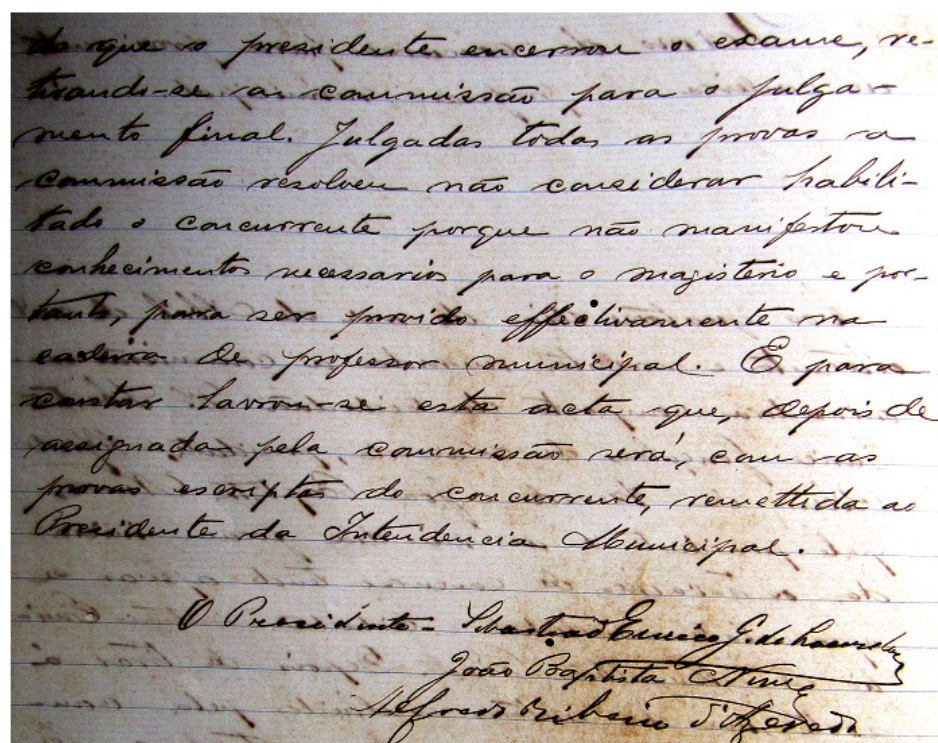 do que o presidente encerrou o exame, re-
tirando-se a commissão para o julga-
mento final. Julgadas todas as provas a
commissão resolveu não considerar habili-
tado o concurrente porque não manifestou
conhecimentos necessarios para o magisterio e por-
tanto, para ser provido effectivamente na
cadeira de professor municipal. E para
constar lavrou-se esta acta que, depois de
assignada pela commissão será, com as
provas escriptas do concurrente, remettida ao
Presidente da Intendencia Municipal.
O Presidente - Sebastião Eurico G. de
João Baptista Nunes
Alfredo Ribeiro d'Azevedo